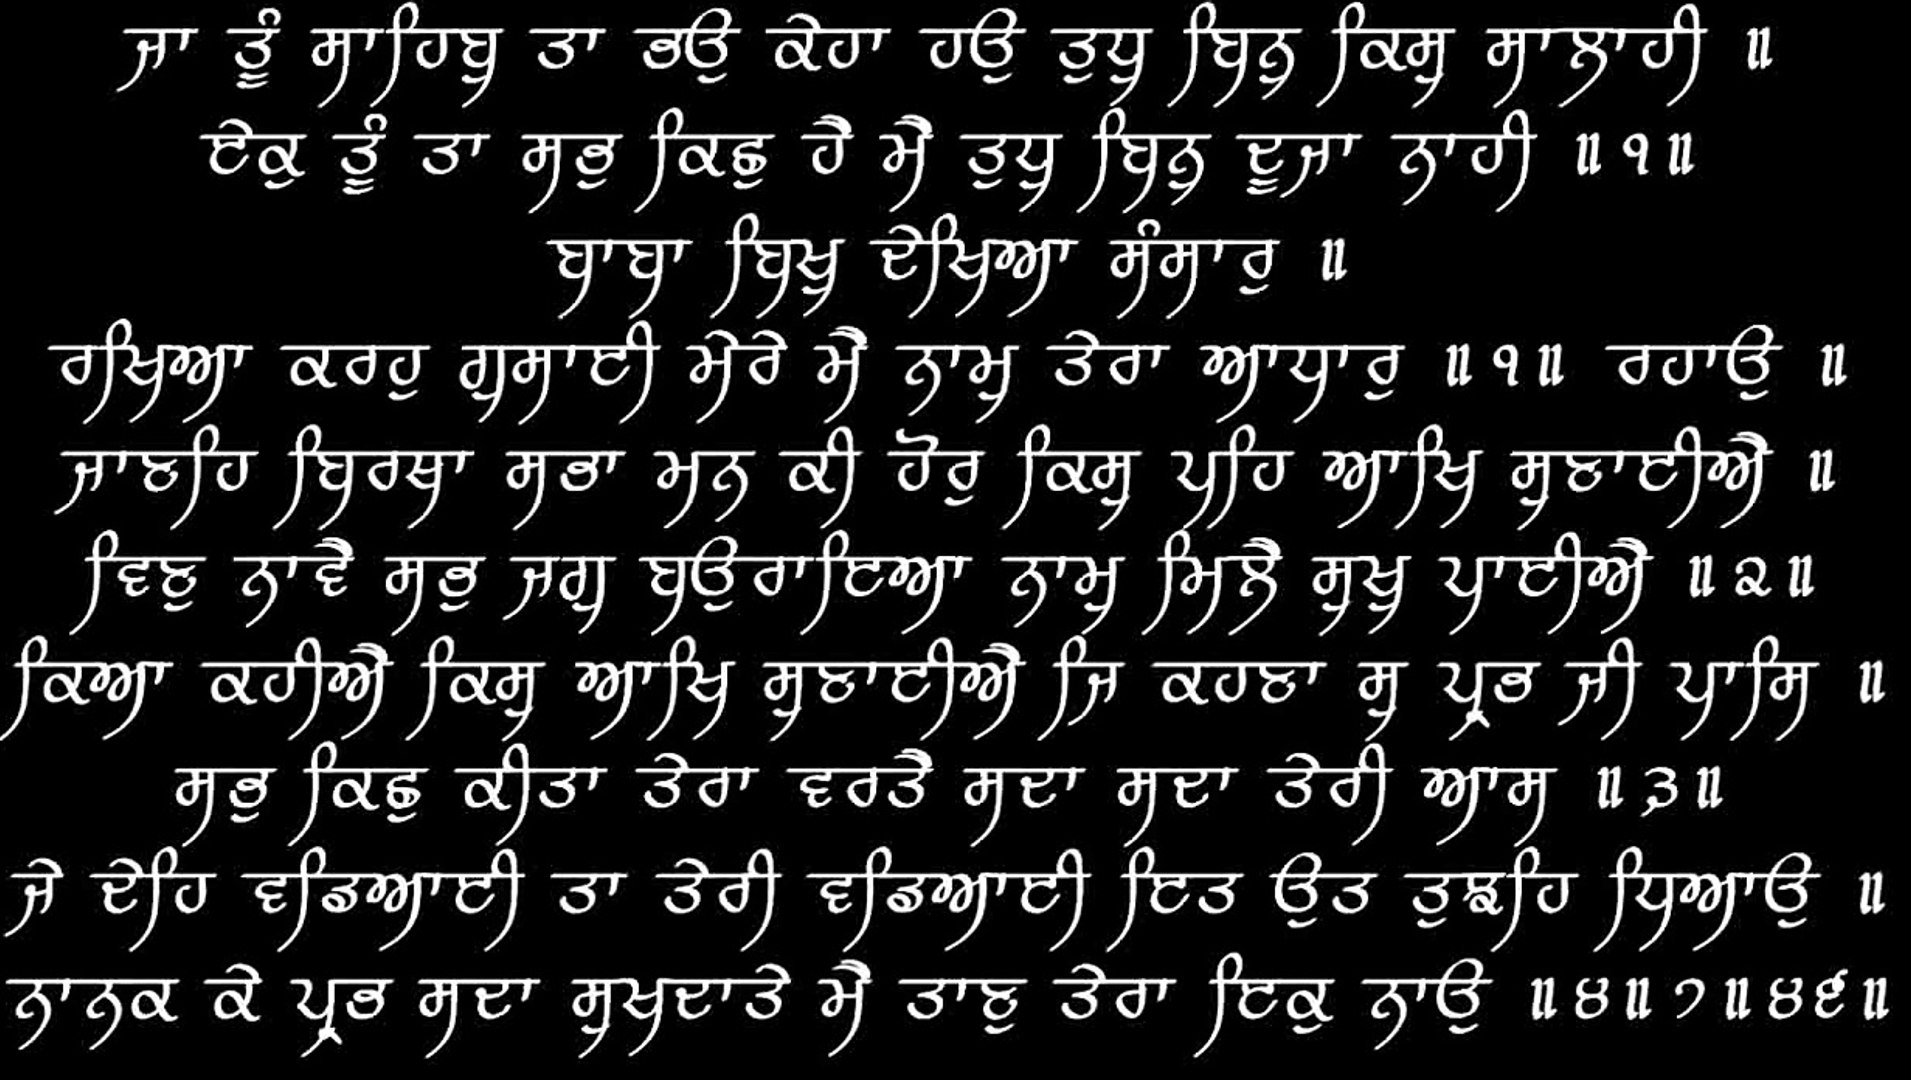 ਜਾ ਤੂੰ ਸਾਹਿਬੁ ਤਾ ਭਉ ਕੇਹਾ ਹਉ ਤੁਧੁ ਬਿਨੁ ਕਿਸੁ ਸਾਲਾਹੀ ॥
ਏਕੁ ਤੂੰ ਤਾ ਸਭੁ ਕਿਛੁ ਹੈ ਮੈ ਤੁਧੁ ਬਿਨੁ ਦੂਜਾ ਨਾਹੀ ॥੧॥
ਬਾਬਾ ਬਿਖੁ ਦੇਖਿਆ ਸੰਸਾਰੁ ॥
ਰਖਿਆ ਕਰਹੁ ਗੁਸਾਈ ਮੇਰੇ ਮੈ ਨਾਮੁ ਤੇਰਾ ਆਧਾਰੁ ॥੧॥ ਰਹਾਉ ॥
ਜਾਣਹਿ ਬਿਰਥਾ ਸਭਾ ਮਨ ਕੀ ਹੋਰੁ ਕਿਸੁ ਪਹਿ ਆਖਿ ਸੁਣਾਈਐ ॥
ਵਿਣੁ ਨਾਵੈ ਸਭੁ ਜਗੁ ਬਉਰਾਇਆ ਨਾਮੁ ਮਿਲੈ ਸੁਖੁ ਪਾਈਐ ॥੨॥
ਕਿਆ ਕਹੀਐ ਕਿਸੁ ਆਖਿ ਸੁਣਾਈਐ ਜਿ ਕਹਣਾ ਸੁ ਪ੍ਰਭ ਜੀ ਪਾਸਿ ॥
ਸਭੁ ਕਿਛੁ ਕੀਤਾ ਤੇਰਾ ਵਰਤੈ ਸਦਾ ਸਦਾ ਤੇਰੀ ਆਸ ॥੩॥
ਜੇ ਦੇਹਿ ਵਡਿਆਈ ਤਾ ਤੇਰੀ ਵਡਿਆਈ ਇਤ ਉਤ ਤੁਝਹਿ ਧਿਆਉ ॥
ਨਾਨਕ ਕੇ ਪ੍ਰਭ ਸਦਾ ਸੁਖਦਾਤੇ ਮੈ ਤਾਣੁ ਤੇਰਾ ਇਕੁ ਨਾਉ ॥੪॥੭॥੪੬॥